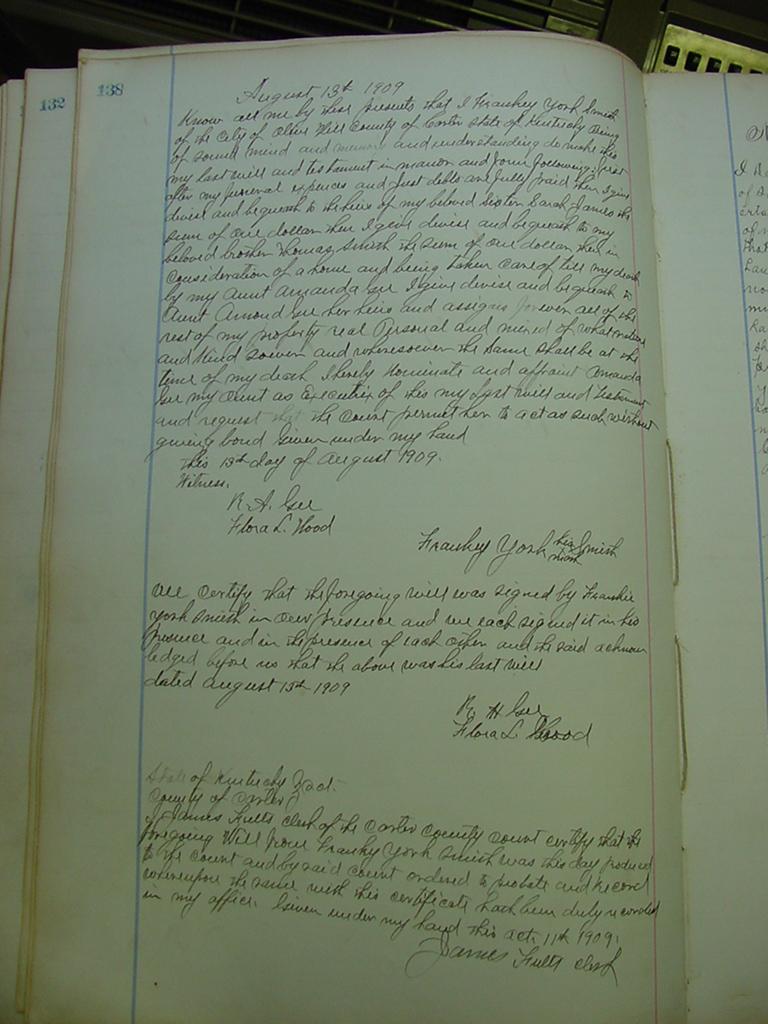 132
138
August 13th 1909
Know all me by these presents that I Frankey York Smith
of the City of Olive Hill County of Carter State of Kentucky being
of sound mind and memory and understanding do make this
my last will and testament in manor and form following: first
after my funeral expences and just debts are fully paid then I give
devise and bequeath to the heirs of my beloved sister Sarah James the
sum of one dollar then I give devise and bequeath to my
beloved brother Thomas Smith the sum of one dollar then in
consideration of a home and being taken care of till my death
by my aunt Amanda Gee I give devise and bequeath to
Aunt Amond Gee her heirs and assigns forever all of the
rest of my property real Personal and mixed of what nature
and Kind soever and wheresoever the same shall be at the
time of my death I hereby nominate and appoint Amanda
Gee my aunt as Executrix of this my last will and Testament
and request that the Court permit her to act as such without
giveing bond Given under my hand
this 13th day of August 1909.
Witness.
R. A. Gee
Flora L. Hood
Frankey York his Smith
mark
We Certify that the foregoing will was signed by Frankie
York Smith in our presence and we each signed it in his
presence and in the presence of each other and he said acknow
ledged before us that the above was his last will
dated August 13th 1909
R. H Gee
Flora L. Hood
State of Kentucky } sct.
County of Carter
I James Fults clerk of the Carter County Court certify that the
foregoing Will from Franky York Smith was this day produced
to the Court and by said Court ordered to probate and record
whereupon the same with this certificate hath been duly recorded
in my office. Given under my hand this Oct. 11th 1909.
James Fults Clerk